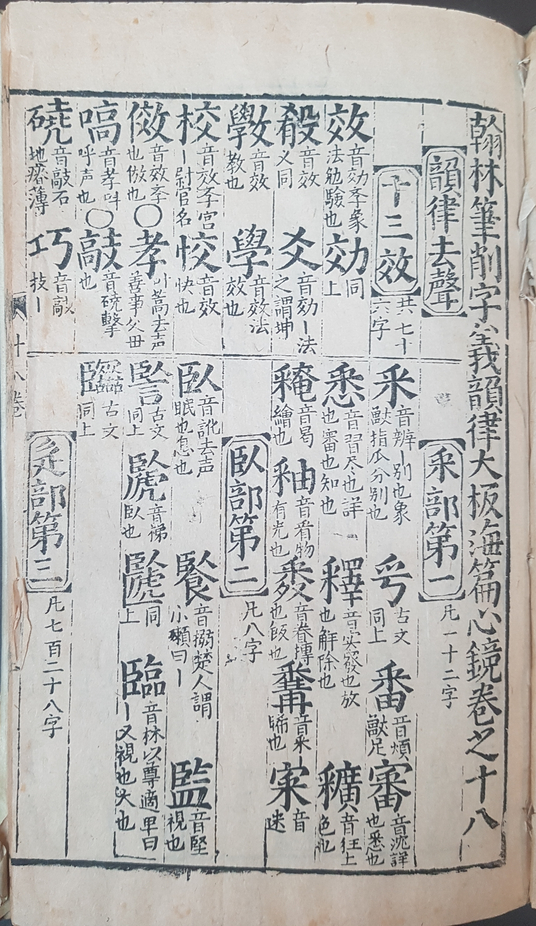 翰林筆削字義韻律大板海篇心鏡卷之十八
韻律去聲
十三效 共七十六字
效 音効孝象法勉驗也 効 同上
殺 音效义同 爻 音効丨法之謂坤
斆 音效教也 學 音效法效也
校 音效孝宮丨尉官名 恔 音效快也
傚 音效孝也倣也 〇孝 小蒿去声善事父母
嗃 音孝呼声也 〇敲 音磽擊也
磽 音敲石地瘠薄 巧 音敲技丨
釆部第一 凡一十二字
釆 音辨丨别也象獸指瓜分别也 古文同上 番 音煩獸足 審 音沈詳也悉也
悉 音習尽也詳也審也知也 釋 音实發也放也解除也 音往上色也
音曷繪也 釉 音宥物有光也 音眷摶也飯也 音釆 寀 音
臥部第二 凡八字
臥 音訛去声眠也息也 音搦楚人謂小嬾曰丨 監 音堅視也
古文同上 音褫臥也 同上 臨 音林以尊適卑曰丨又視也大也
古文同上
辵部第三 凡七百二十八字
十八卷